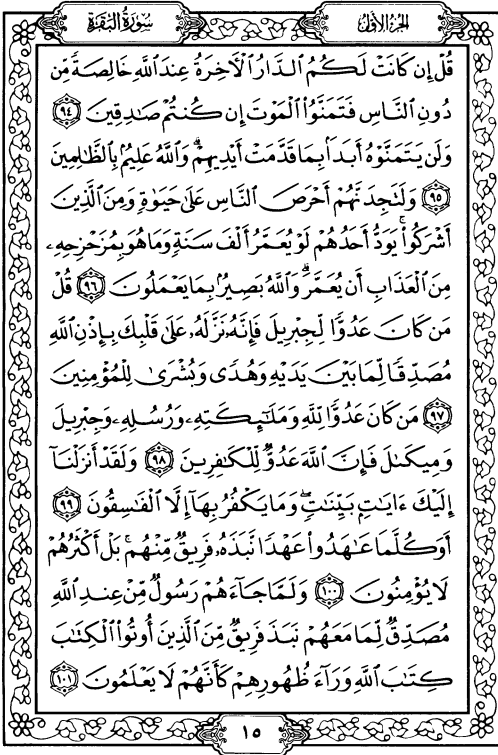 سُورَةُ البَقَرَةِ
الجُزءُ الأَوَّلُ
قُلْ إِن كَانَتْ لَكُمُ الدَّارُ الْآخِرَةُ عِندَ اللَّهِ خَالِصَةً مِّن
دُونِ النَّاسِ فَتَمَنَّوُا الْمَوْتَ إِن كُنتُمْ صَادِقِينَ ٩٤
وَلَن يَتَمَنَّوْهُ أَبَدًا بِمَا قَدَّمَتْ أَيْدِيهِمْ ۗ وَاللَّهُ عَلِيمٌ بِالظَّالِمِينَ
٩٥ وَلَتَجِدَنَّهُمْ أَحْرَصَ النَّاسِ عَلَىٰ حَيَوٰةٍ وَمِنَ الَّذِينَ
أَشْرَكُوا ۚ يَوَدُّ أَحَدُهُمْ لَوْ يُعَمَّرُ أَلْفَ سَنَةٍ وَمَا هُوَ بِمُزَحْزِحِهِۦ
مِنَ الْعَذَابِ أَن يُعَمَّرَ ۗ وَاللَّهُ بَصِيرٌ بِمَا يَعْمَلُونَ ٩٦ قُلْ
مَن كَانَ عَدُوًّا لِّجِبْرِيلَ فَإِنَّهُۥ نَزَّلَهُۥ عَلَىٰ قَلْبِكَ بِإِذْنِ اللَّهِ
مُصَدِّقًا لِّمَا بَيْنَ يَدَيْهِ وَهُدًى وَبُشْرَىٰ لِلْمُؤْمِنِينَ
٩٧ مَن كَانَ عَدُوًّا لِّلَّهِ وَمَلَٰٓئِكَتِهِۦ وَرُسُلِهِۦ وَجِبْرِيلَ
وَمِيكَىٰلَ فَإِنَّ اللَّهَ عَدُوٌّ لِّلْكَٰفِرِينَ ٩٨ وَلَقَدْ أَنزَلْنَآ
إِلَيْكَ ءَايَٰتٍۭ بَيِّنَٰتٍ ۖ وَمَا يَكْفُرُ بِهَآ إِلَّا الْفَٰسِقُونَ ٩٩
أَوَكُلَّمَا عَٰهَدُوا عَهْدًا نَّبَذَهُۥ فَرِيقٌ مِّنْهُم ۚ بَلْ أَكْثَرُهُمْ
لَا يُؤْمِنُونَ ١٠٠ وَلَمَّا جَآءَهُمْ رَسُولٌ مِّنْ عِندِ اللَّهِ
مُصَدِّقٌ لِّمَا مَعَهُمْ نَبَذَ فَرِيقٌ مِّنَ الَّذِينَ أُوتُوا الْكِتَٰبَ
كِتَٰبَ اللَّهِ وَرَآءَ ظُهُورِهِمْ كَأَنَّهُمْ لَا يَعْلَمُونَ ١٠١
١٥